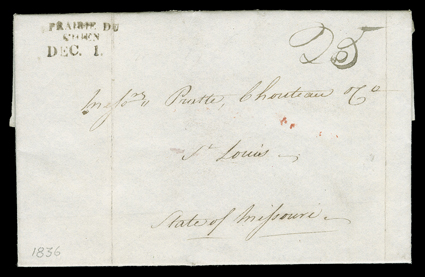 PRAIRIE DU
CHIEN
DEC. 1.
25
Messrs Pratte, Chouteau & Co
St Louis
State of Missouri
1836